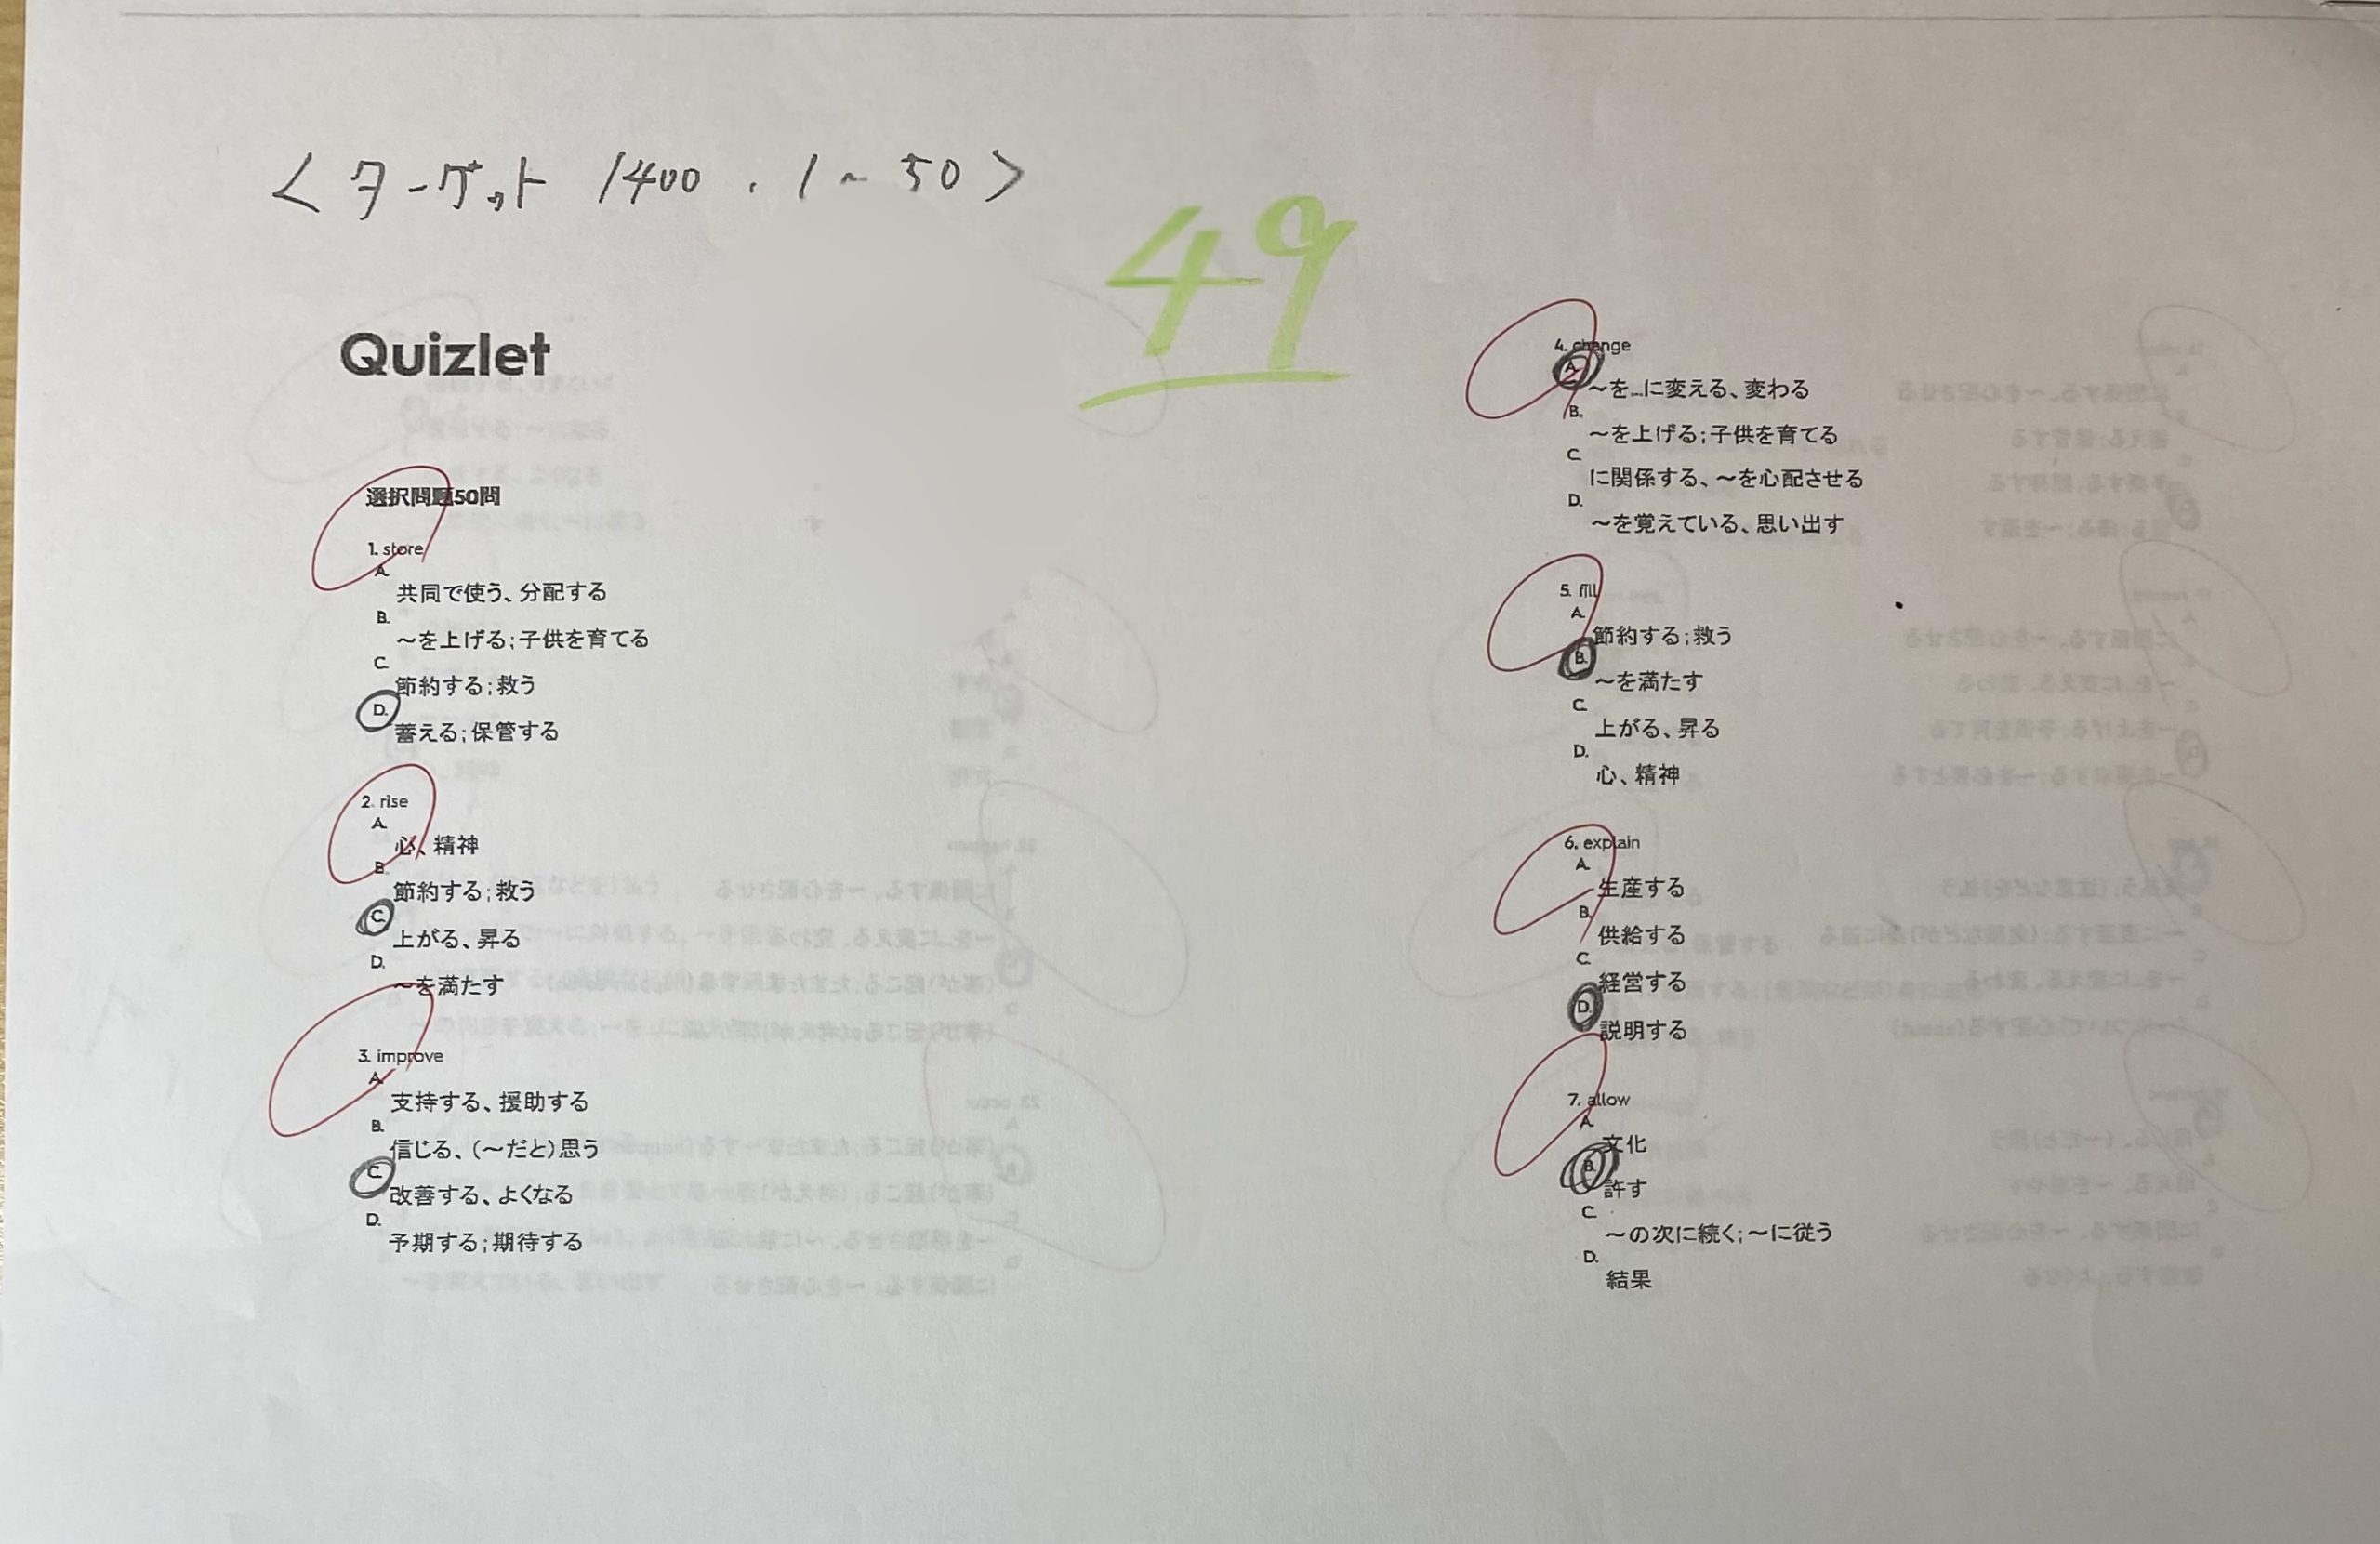 <ターゲット 1400. 1~50>
49
Quizlet
選択問題50問
1. store
A.
共同で使う、分配する
B.
～を上げる;子供を育てる
C.
節約する;救う
D.
蓄える;保管する
2. rise
A.
心、精神
B.
節約する;救う
C.
上がる、昇る
D.
～を満たす
3. improve
A.
支持する、援助する
B.
信じる、(～だと)思う
C.
改善する、よくなる
D.
予期する;期待する
4. change
A.
～を...に変える、変わる
B.
～を上げる;子供を育てる
C.
に関係する、～を心配させる
D.
～を覚えている、思い出す
5. fill
A.
節約する;救う
B.
～を満たす
C.
上がる、昇る
D.
心、精神
6. explain
A.
生産する
B.
供給する
C.
経営する
D.
説明する
7. allow
A.
文化
B.
許す
C.
～の次に続く;～に従う
D.
結果